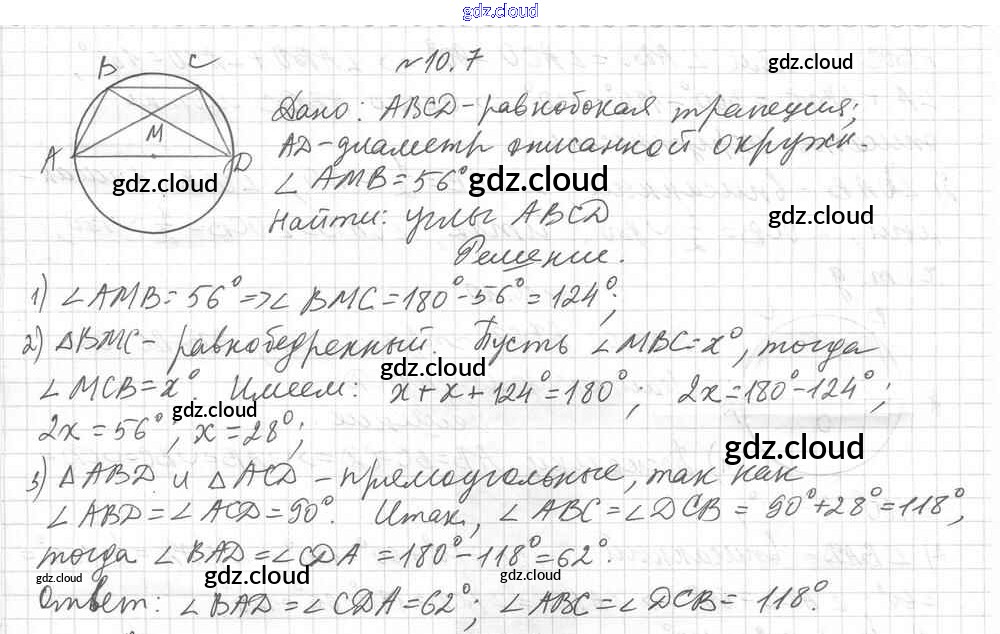 gdz.cloud
№10.7
gdz.cloud
B C M A D
gdz.cloud
Дано: ABCD-равнобокая трапеция;
AD-диаметр описанной окружн.
∠AMB=56°
gdz.cloud
Найти: углы ABCD
gdz.cloud
Решение.
1) ∠AMB=56°=>∠BMC=180°-56°=124°;
2) △BMC-равнобедренный. Пусть ∠MBC=x°, тогда
gdz.cloud
∠MCB=x°. Имеем: x+x+124°=180°; 2x=180°-124°;
gdz.cloud
2x=56°; x=28°;
gdz.cloud
3) △ABD и △ACD-прямоугольные, так как
∠ABD=∠ACD=90°. Итак, ∠ABC=∠DCB=90°+28°=118°,
тогда ∠BAD=∠CDA=180°-118°=62°.
gdz.cloud gdz.cloud gdz.cloud
Ответ: ∠BAD=∠CDA=62°; ∠ABC=∠DCB=118°.